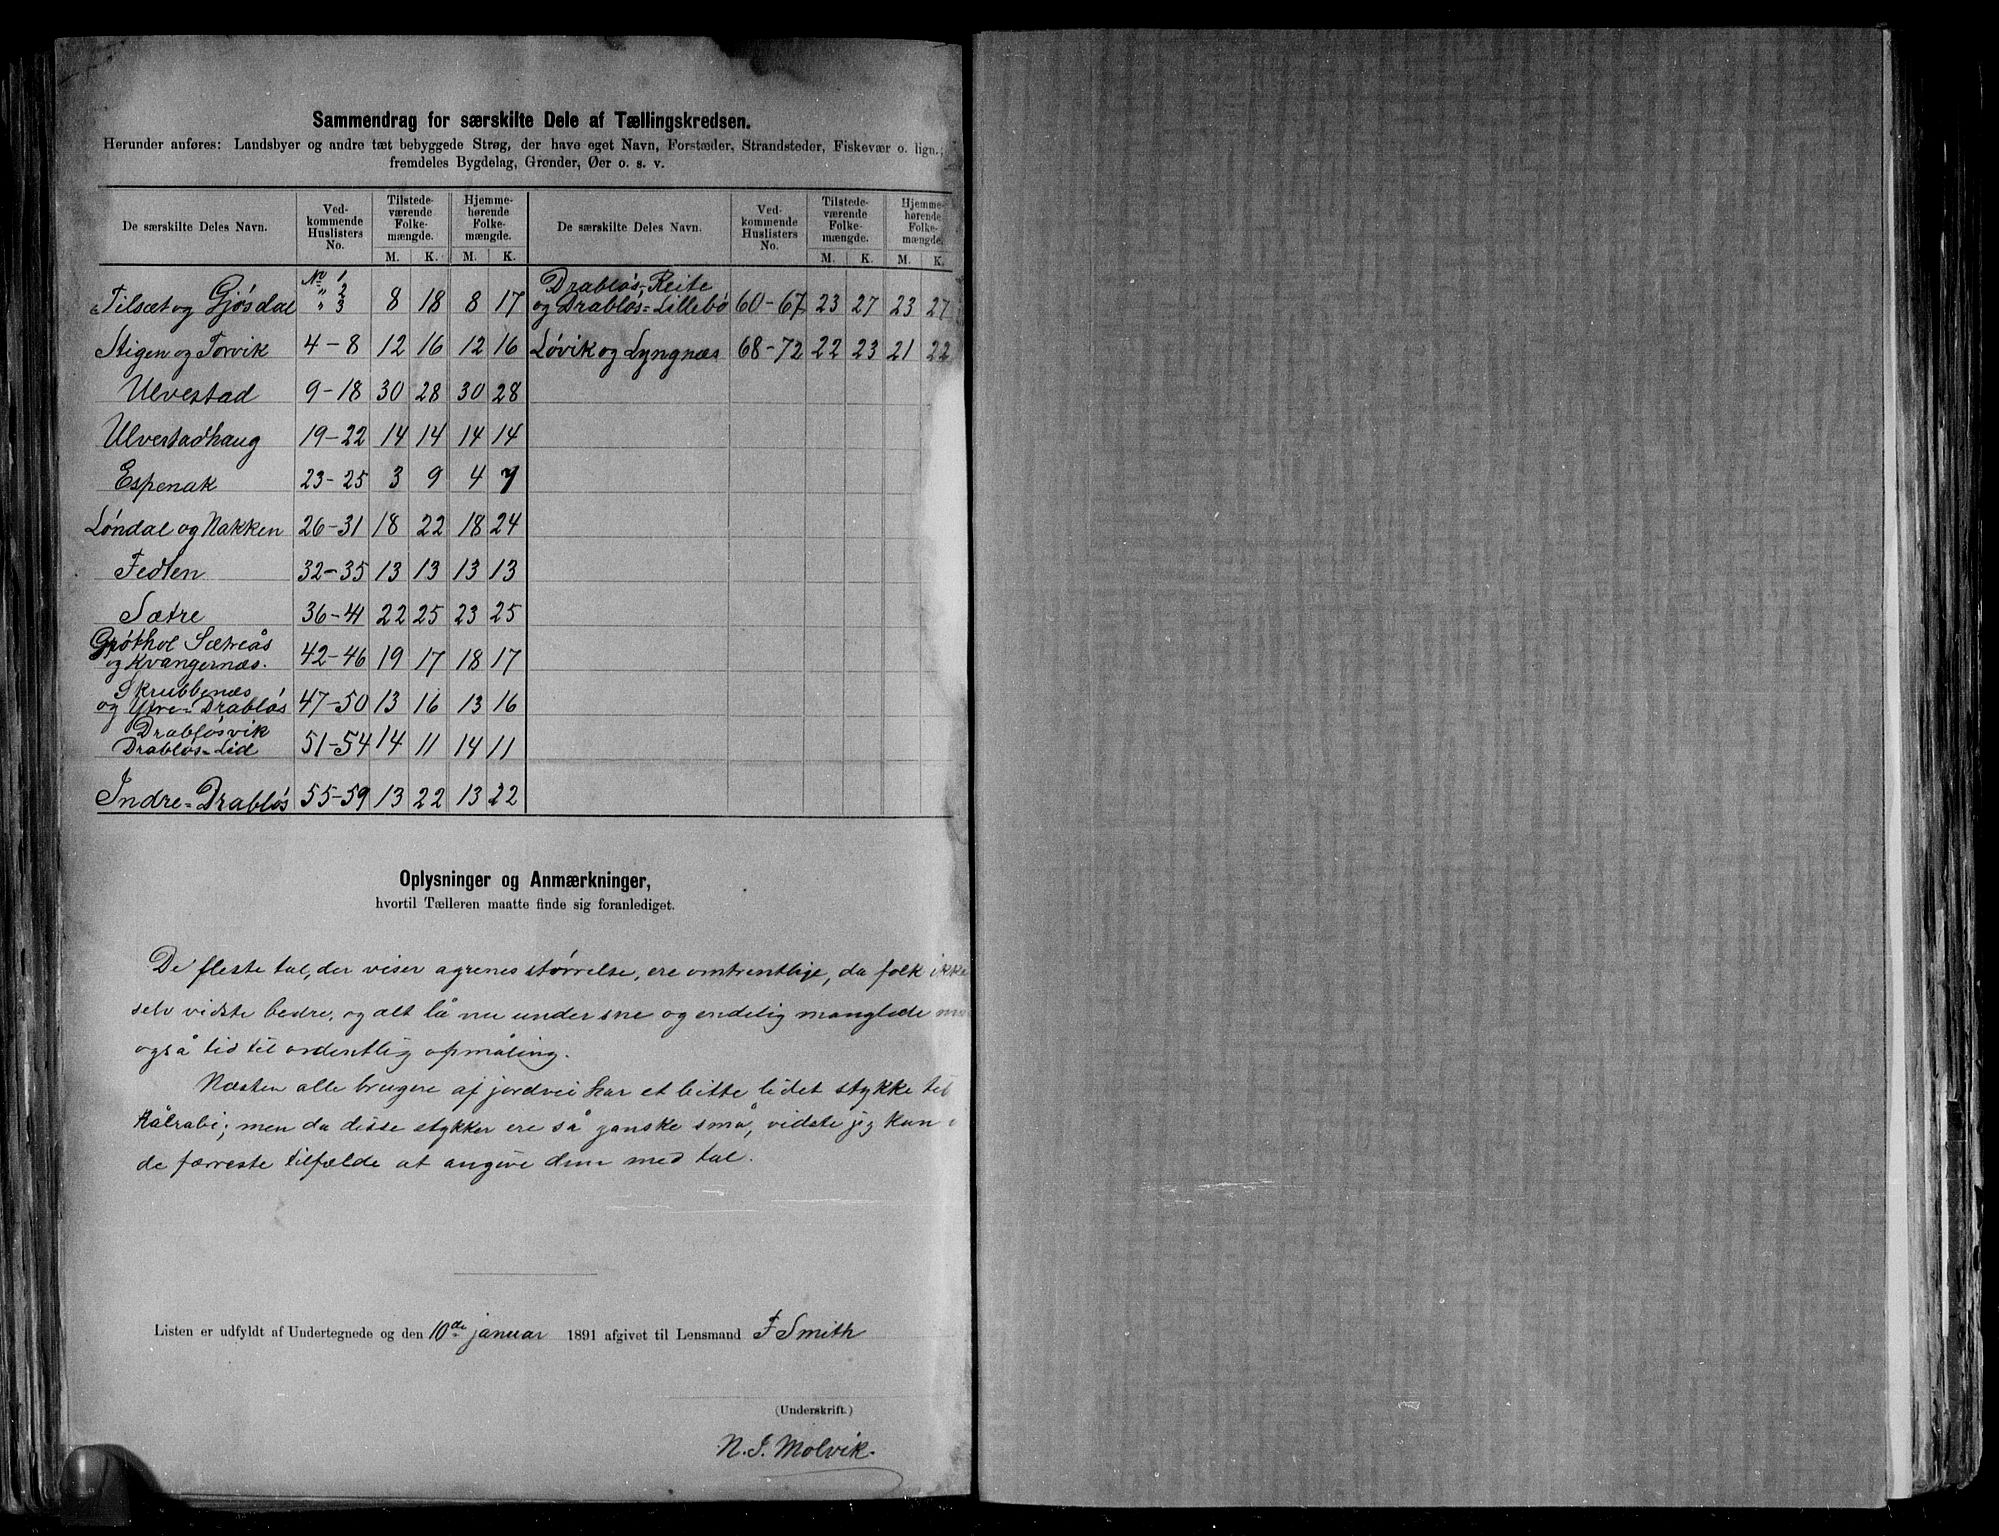 Sammendrag for særskilte Dele af Tællingskredsen.
Herunder anføres: Landsbyer og andre tæt bebyggede Strøg, der have eget Navn, Forstæder, Strandsteder, Fiskevær o. lign.;
fremdeles Bygdelag, Grender, Øer o. s. v.
De særskilte Deles Navn. Ved-kommende Huslisters No. Tilstede-værende Folke-mængde. Hjemme-hørende Folke-mængde. De særskilte Deles Navn. Ved-kommende Huslisters No. Tilstede-værende Folke-mængde. Hjemme-hørende Folke-mængde.
M. K. M. K. M. K. M. K.
Tilsæt og Gjösdal No 1 " 2 " 3 8 18 8 17 Drabløs-Reite og Drabløs-Lillebø 60-67 23 27 23 27
Stigen og Torvik 4-8 12 16 12 16 Løvik og Lyngnæs 68-72 22 23 21 22
Ulvestad 9-18 30 28 30 28
Ulvestadhaug 19-22 14 14 14 14
Espenak 23-25 3 9 4 7
Løndal og Nakken 26-31 18 22 18 24
Fedlen 32-35 13 13 13 13
Sætre 36-41 22 25 23 25
Grøthol Sætreås og Kvangernæs. 42-46 19 17 18 17
Skrubbenæs og Ytre-Drabløs 47-50 13 16 13 16
Drabløsvik Drabløs-Lid 51-54 14 11 14 11
Indre-Drabløs 55-59 13 22 13 22
Oplysninger og Anmærkninger,
hvortil Tælleren maatte finde sig foranlediget.
De fleste tal, der viser agrenes størrelse, ere omtrentlige, da folk ikke
selv vidste bedre, og alt lå nu under sne og endelig manglede
også tid til ordentlig opmåling.
Næsten alle brugere af jordvei har et bitte lidet stykke til
Kålrabi; men da disse stykker ere så ganske små, vidste jeg kun i
de færreste tilfælde at angive dem med tal.
Listen er udfyldt af Undertegnede og den 10de januar 1891 afgivet til Lensmand F Smith
(Underskrift.)
N. J. Molvik.